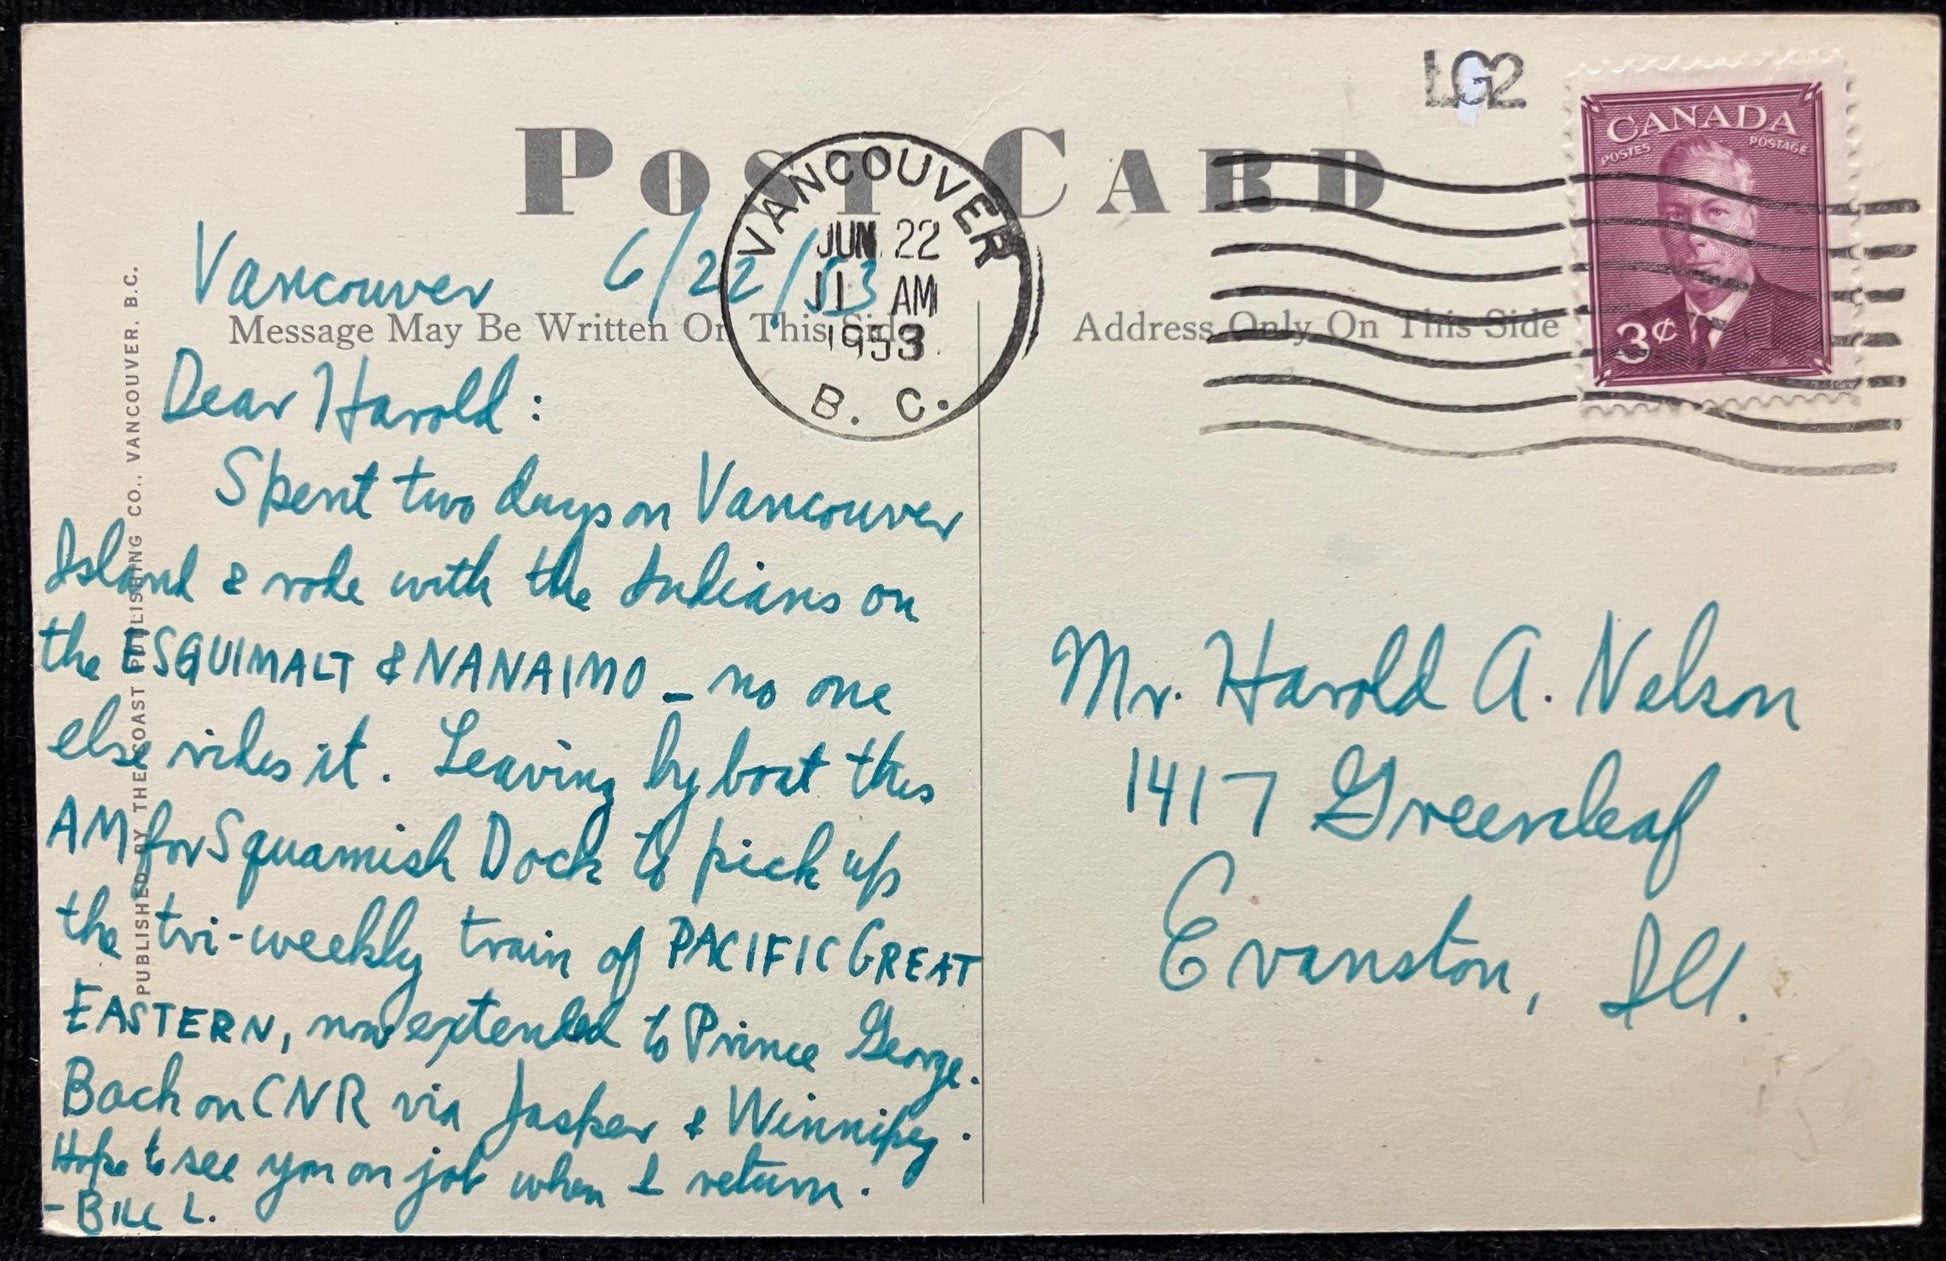 LG2
CANADA
POSTES POSTAGE
3¢
POST CARD
VANCOUVER
JUN 22
11 AM
1953
B. C.
Vancouver 6/22/53
Message May Be Written On This Side
Address Only On This Side
Dear Harold:
Spent two days on Vancouver
Island & rode with the Indians on
the ESQUIMALT & NANAIMO – no one
else rides it. Leaving by boat this
AM for Squamish Dock to pick up
the tri-weekly train of PACIFIC GREAT
EASTERN, now extended to Prince George.
Back on CNR via Jasper & Winnipeg.
Hope to see you on job when I return.
– BILL L.
Mr. Harold A. Nelson
1417 Greenleaf
Evanston, Ill.
PUBLISHED BY THE COAST PUBLISHING CO., VANCOUVER, B.C.